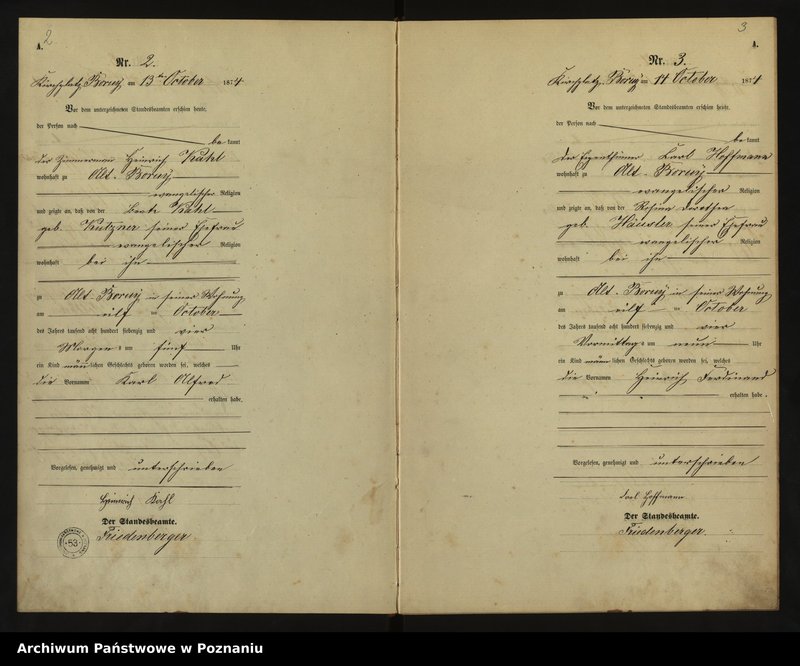 2
A.
Nr. 2.
Kirchplatz Boruy am 13ten October 1874
Vor dem unterzeichneten Standesbeamten erschien heute,
der Person nach
be kannt
der Zimmermann Heinrich Kahl
wohnhaft zu Alt-Boruy
evangelischer Religion
und zeigte an, daß von der Kahl
geb. Kutzner seiner Ehefrau
evangelischer Religion
wohnhaft bei ihm
zu Alt-Boruy in seiner Wohnung
am eilf ten October
des Jahres tausend acht hundert siebenzig und vier
Morgens um fünf Uhr
ein Kind männlichen Geschlechts geboren worden sei, welches
die Vornamen Karl Alfred
erhalten habe.
Vorgelesen, genehmigt und unterschrieben
Heinrich Kahl
Der Standesbeamte.
Friedenberger
53
3
A.
Nr. 3.
Kirchplatz Boruy am 14 October 1874
Vor dem unterzeichneten Standesbeamten erschien heute,
der Person nach
be kannt
der Eigenthümer Karl Hoffmann
wohnhaft zu Alt-Boruy
evangelischer Religion
und zeigte an, daß von der Rosina Dorothea
geb. Häusler seiner Ehefrau
evangelischer Religion
wohnhaft bei ihm
zu Alt-Boruy in seiner Wohnung
am eilf ten October
des Jahres tausend acht hundert siebenzig und vier
Vormittags um neun Uhr
ein Kind männlichen Geschlechts geboren worden sei, welches
die Vornamen Heinrich Ferdinand
erhalten habe.
Vorgelesen, genehmigt und unterschrieben
Carl Hoffmann
Der Standesbeamte.
Friedenberger.
Archiwum Państwowe w Poznaniu